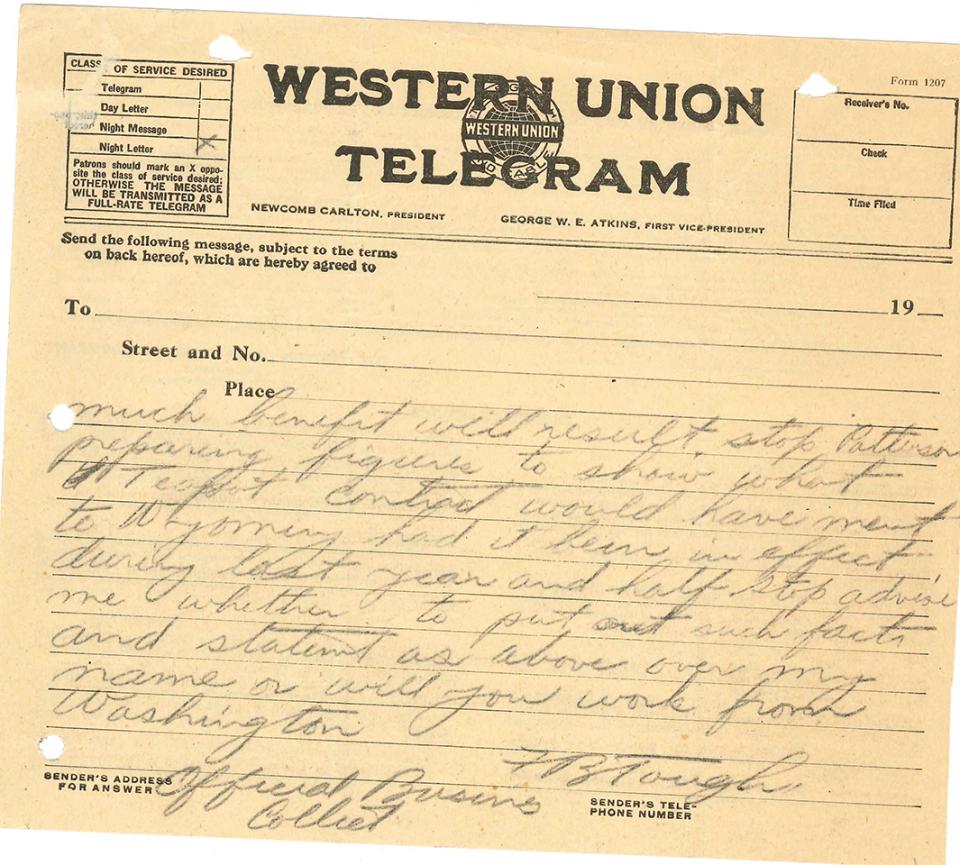 CLASS OF SERVICE DESIRED
Telegram
Day Letter
Night Message
Night Letter X
Patrons should mark an X oppo-
site the class of service desired;
OTHERWISE THE MESSAGE
WILL BE TRANSMITTED AS A
FULL-RATE TELEGRAM
WESTERN UNION
WESTERN UNION
TELEGRAM
NEWCOMB CARLTON, PRESIDENT
GEORGE W. E. ATKINS, FIRST VICE-PRESIDENT
Form 1207
Receiver's No.
Check
Time Filed
Send the following message, subject to the terms
on back hereof, which are hereby agreed to
19
To
Street and No.
Place
much benefit will result stop Patterson
preparing figures to show what
Teapot contract would have ment
to Wyoming had it been in effect
during last year and half stop advise
me whether to put out such facts
and statemt as above over my
name or will you work from
Washington
F B Tough
SENDER'S ADDRESS
FOR ANSWER
Official Business
Collect
SENDER'S TELE-
PHONE NUMBER